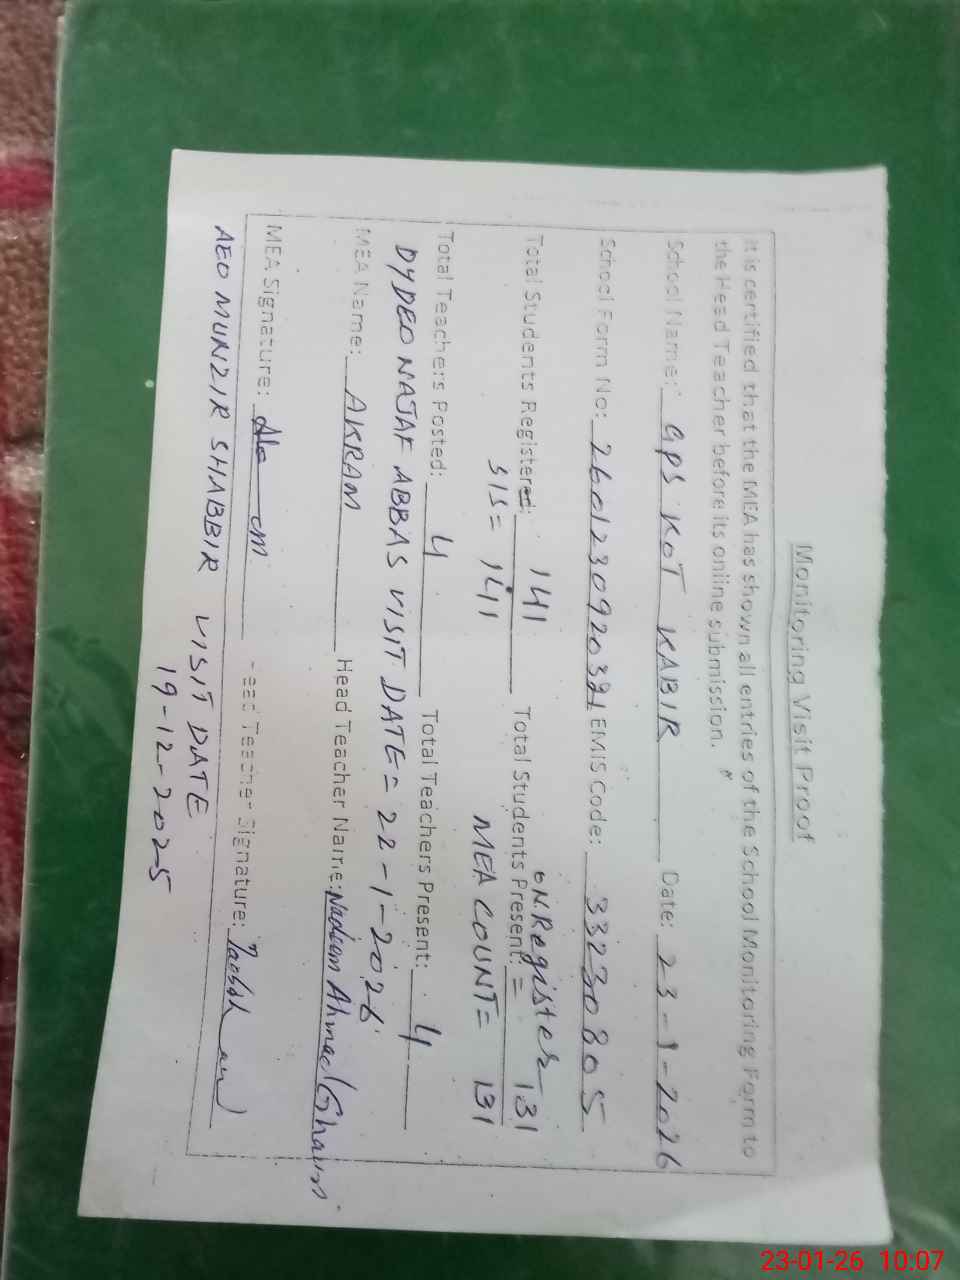 Monitoring Visit Proof
It is certified that the MEA has shown all entries of the School Monitoring Form to
the Head Teacher before its online submission.
School Name: GPS KOT KABIR Date: 23-1-2026
School Form No: EMIS Code: 33230805
ON.Register
Total Students Registered: 141 Total Students Present: = 131
SIS = 141 MEA COUNT = 131
Total Teachers Posted: 4 Total Teachers Present: 4
DYDEO NAJAF ABBAS VISIT DATE = 22-1-2026
MEA Name: AKRAM Head Teacher Name: Nadeem Ahmad
MEA Signature: Head Teacher Signature:
AEO MUNZIR SHABBIR VISIT DATE
19-12-2025
23-01-26 10:07